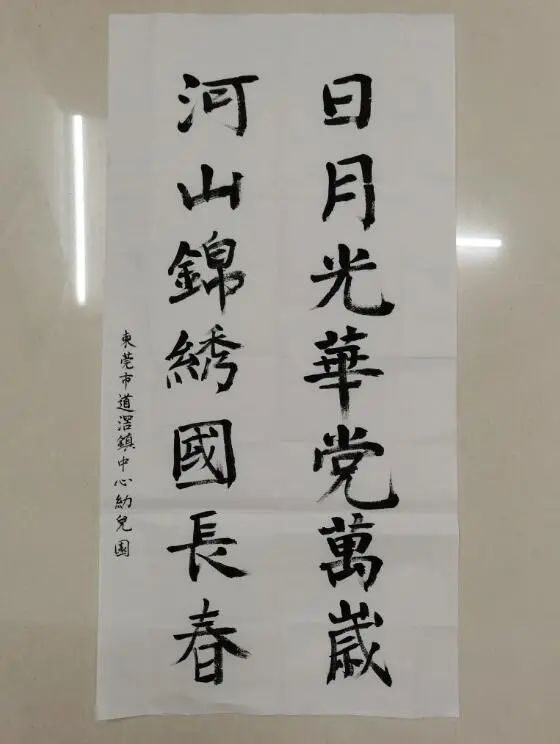 日月光華党萬歲
河山錦綉國長春
東莞市道滘鎮中心幼兒園